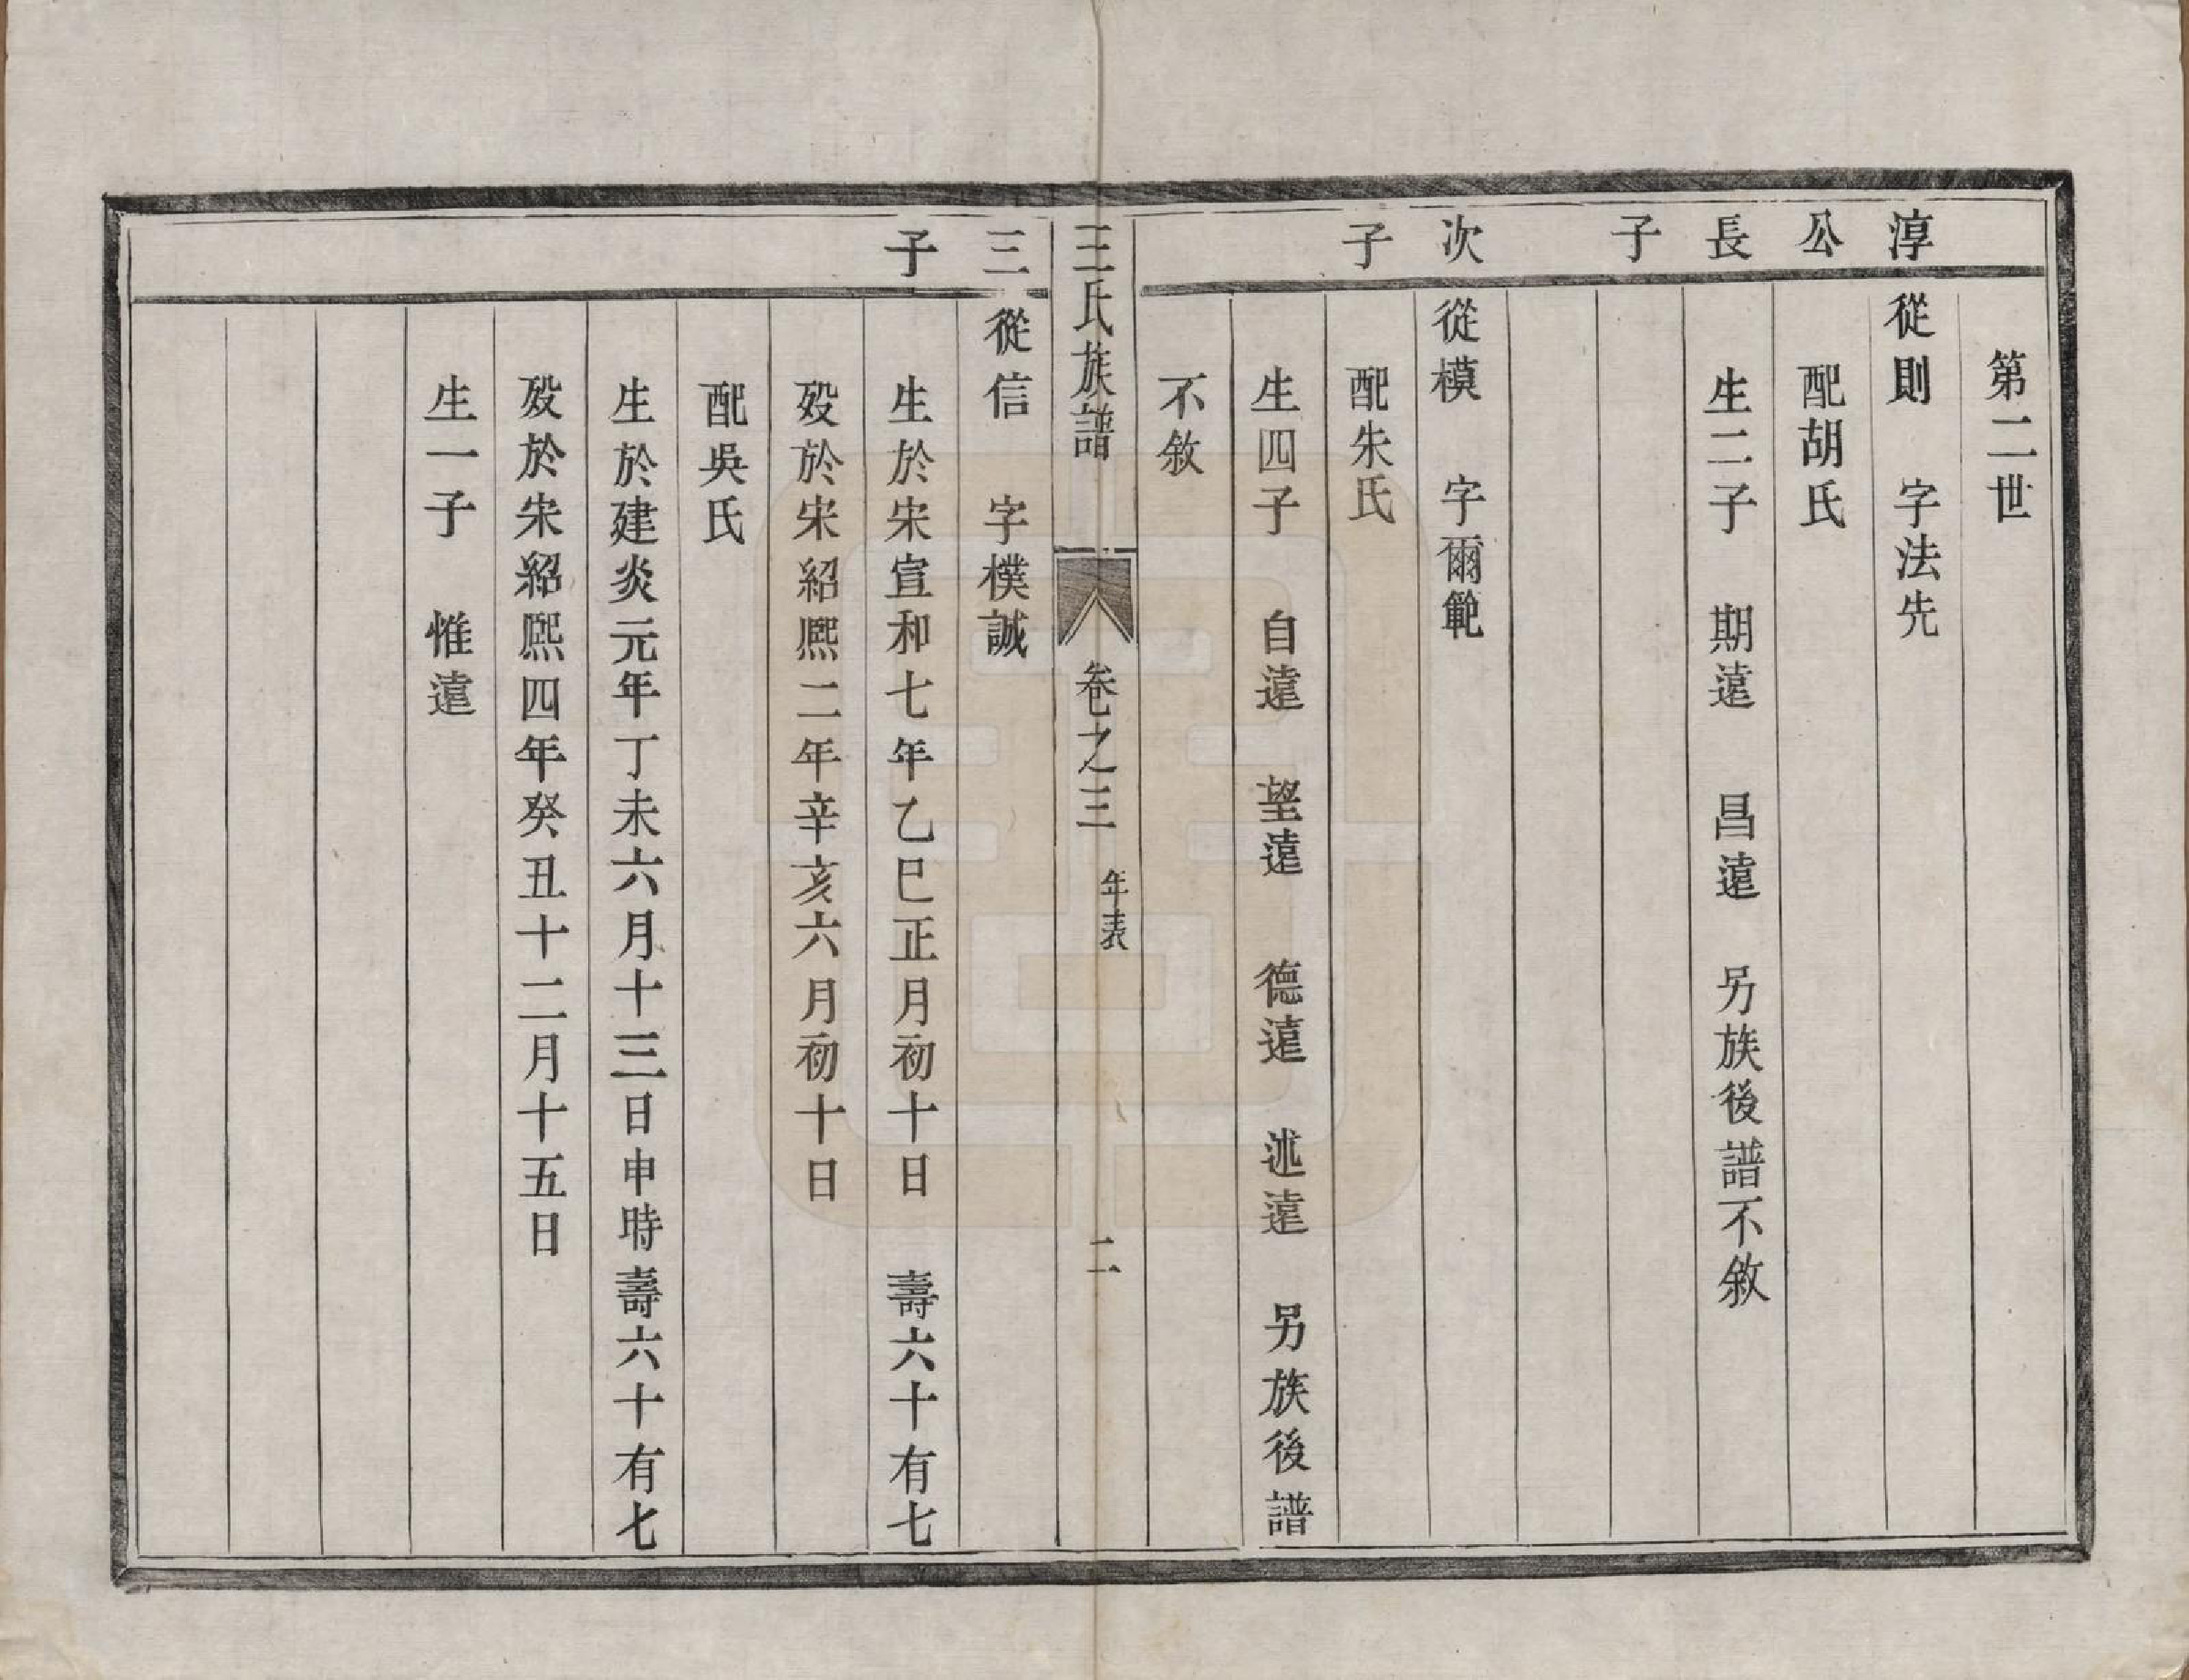 第二世
淳公長子
從則　字法先
配胡氏
生二子　期遠　昌遠　另族後譜不敘
次子
從模　字爾範
配朱氏
生四子　自遠　望遠　德遠　述遠　另族後譜
不敘
王氏族譜　卷之三　年表　二
三子
從信　字樸誠
生於宋宣和七年乙巳正月初十日　壽六十有七
歿於宋紹熙二年辛亥六月初十日
配吳氏
生於建炎元年丁未六月十三日申時壽六十有七
歿於宋紹熙四年癸丑十二月十五日
生一子　惟遠